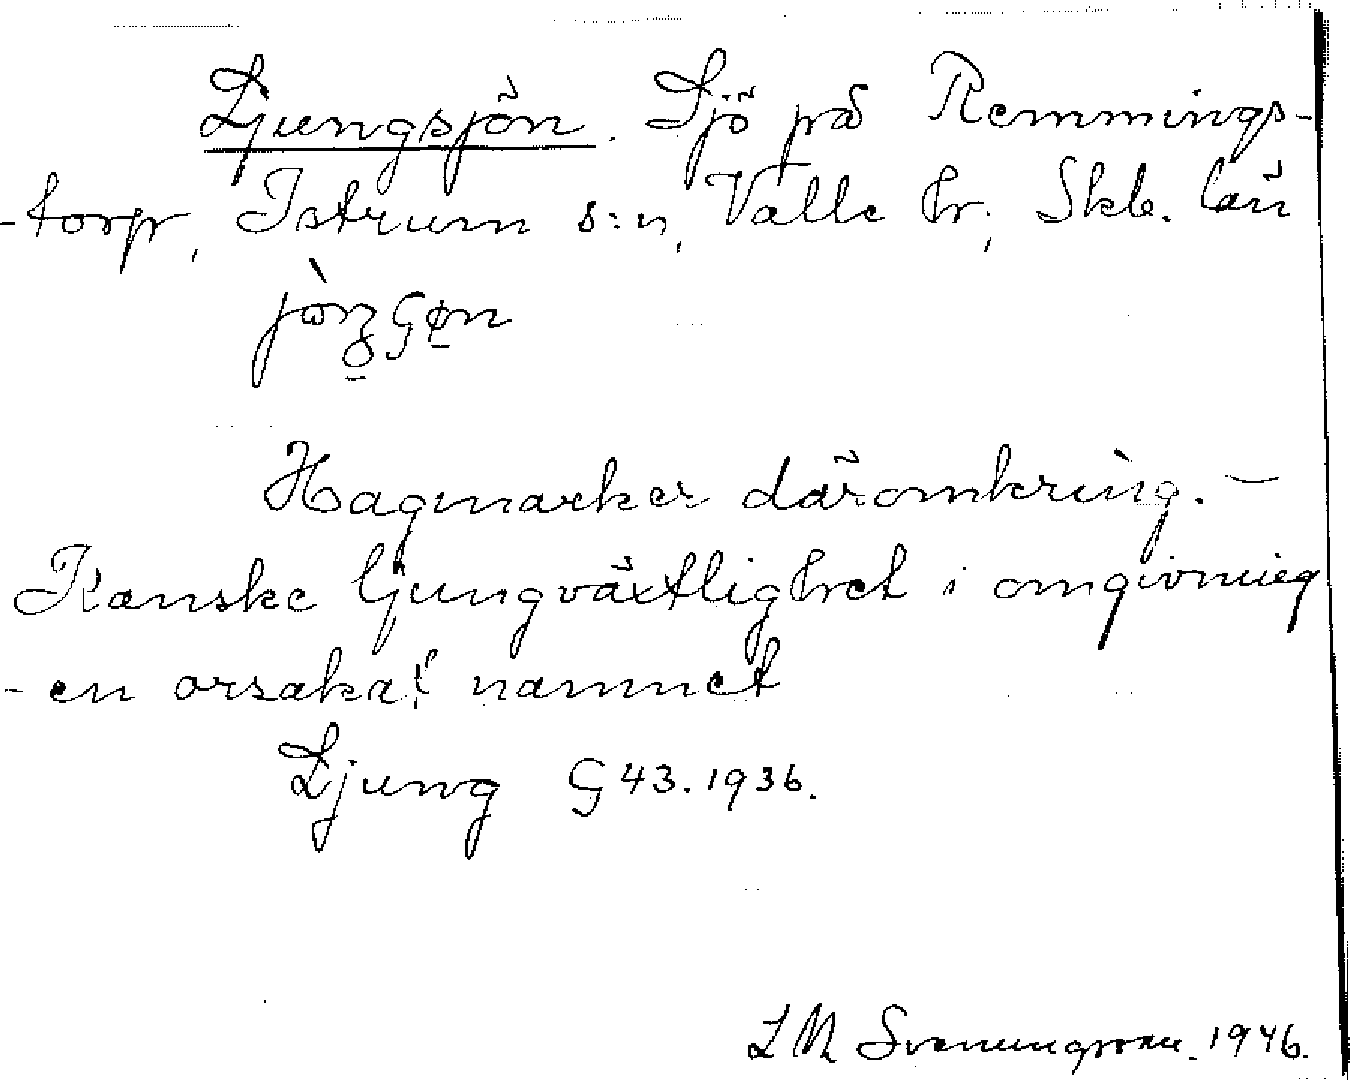 Ljungsjön. Sjö på Remmings-
-torp, Istrum s:n, Valle hr, Skb. län
Hagmarker däromkring. –
Kanske ljungväxtlighet i omgivning
-en orsakat namnet
Ljung G 43. 1936.
L M Svenungsson. 1946.